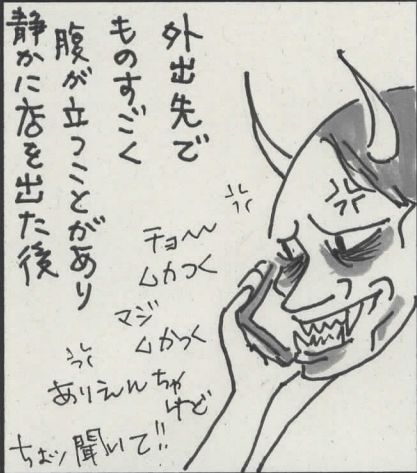 外出先で
ものすごく
腹が立つことがあり
静かに店を出た後
チョ〜〜
ムカつく
マジ
ムかつく
ありえんちゃ
けど
ちょッ聞いて!!